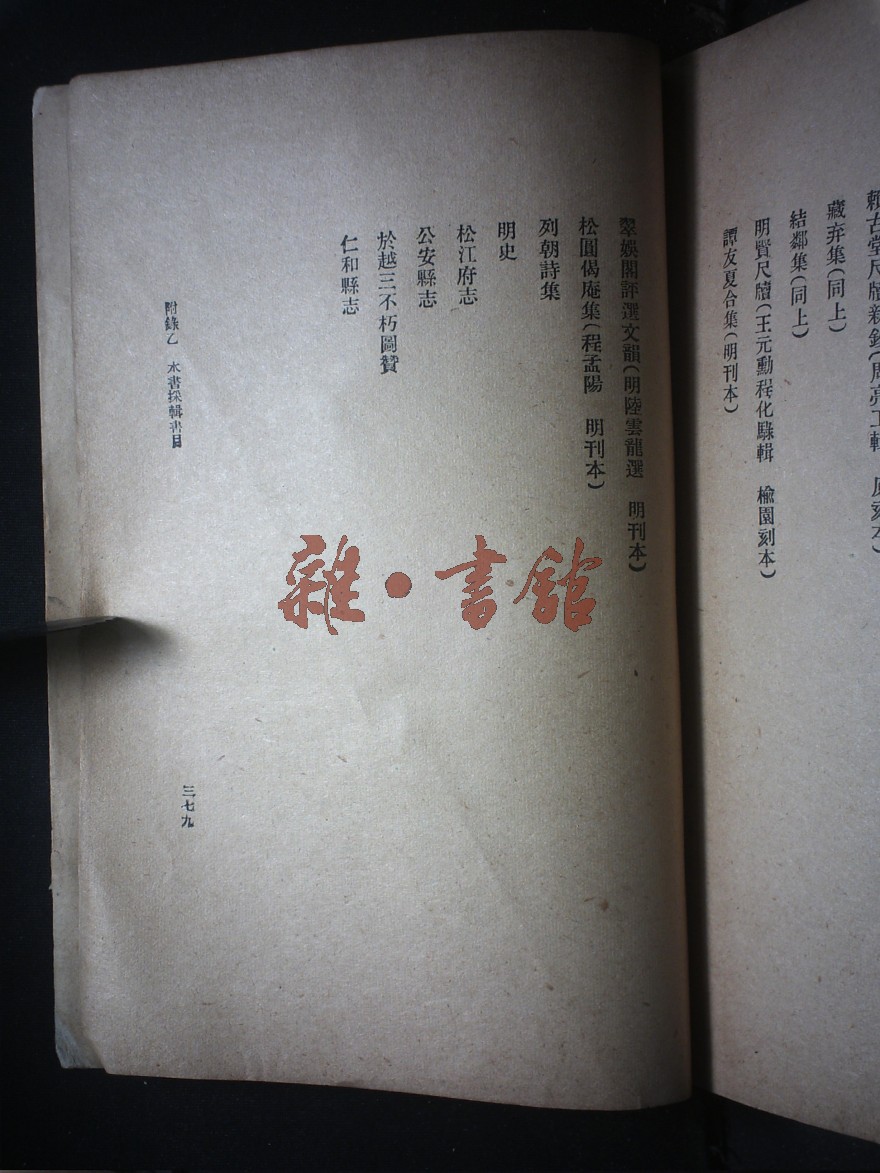 賴古堂尺牘新鈔(周亮工輯 原刻本)
藏弆集(同上)
結鄰集(同上)
明賢尺牘(王元勳程化騄輯 檢園刻本)
譚友夏合集(明刊本)
翠娛閣評選文韻(明陸雲龍選 明刊本)
松圓偈庵集(程孟陽 明刊本)
列朝詩集
明史
松江府志
公安縣志
於越三不朽圖贊
仁和縣志
附錄乙 本書採輯書目
三七九
雜·書館